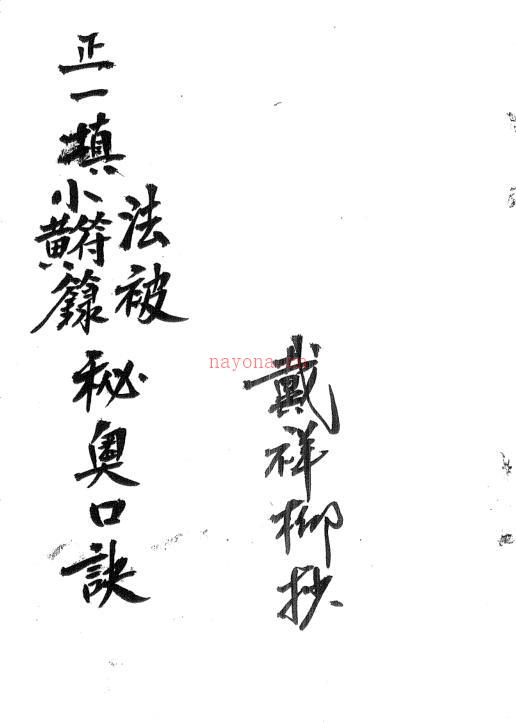 戴祥柳抄
正一填
法被
小黄符籙
秘奥口訣
nayona.cn